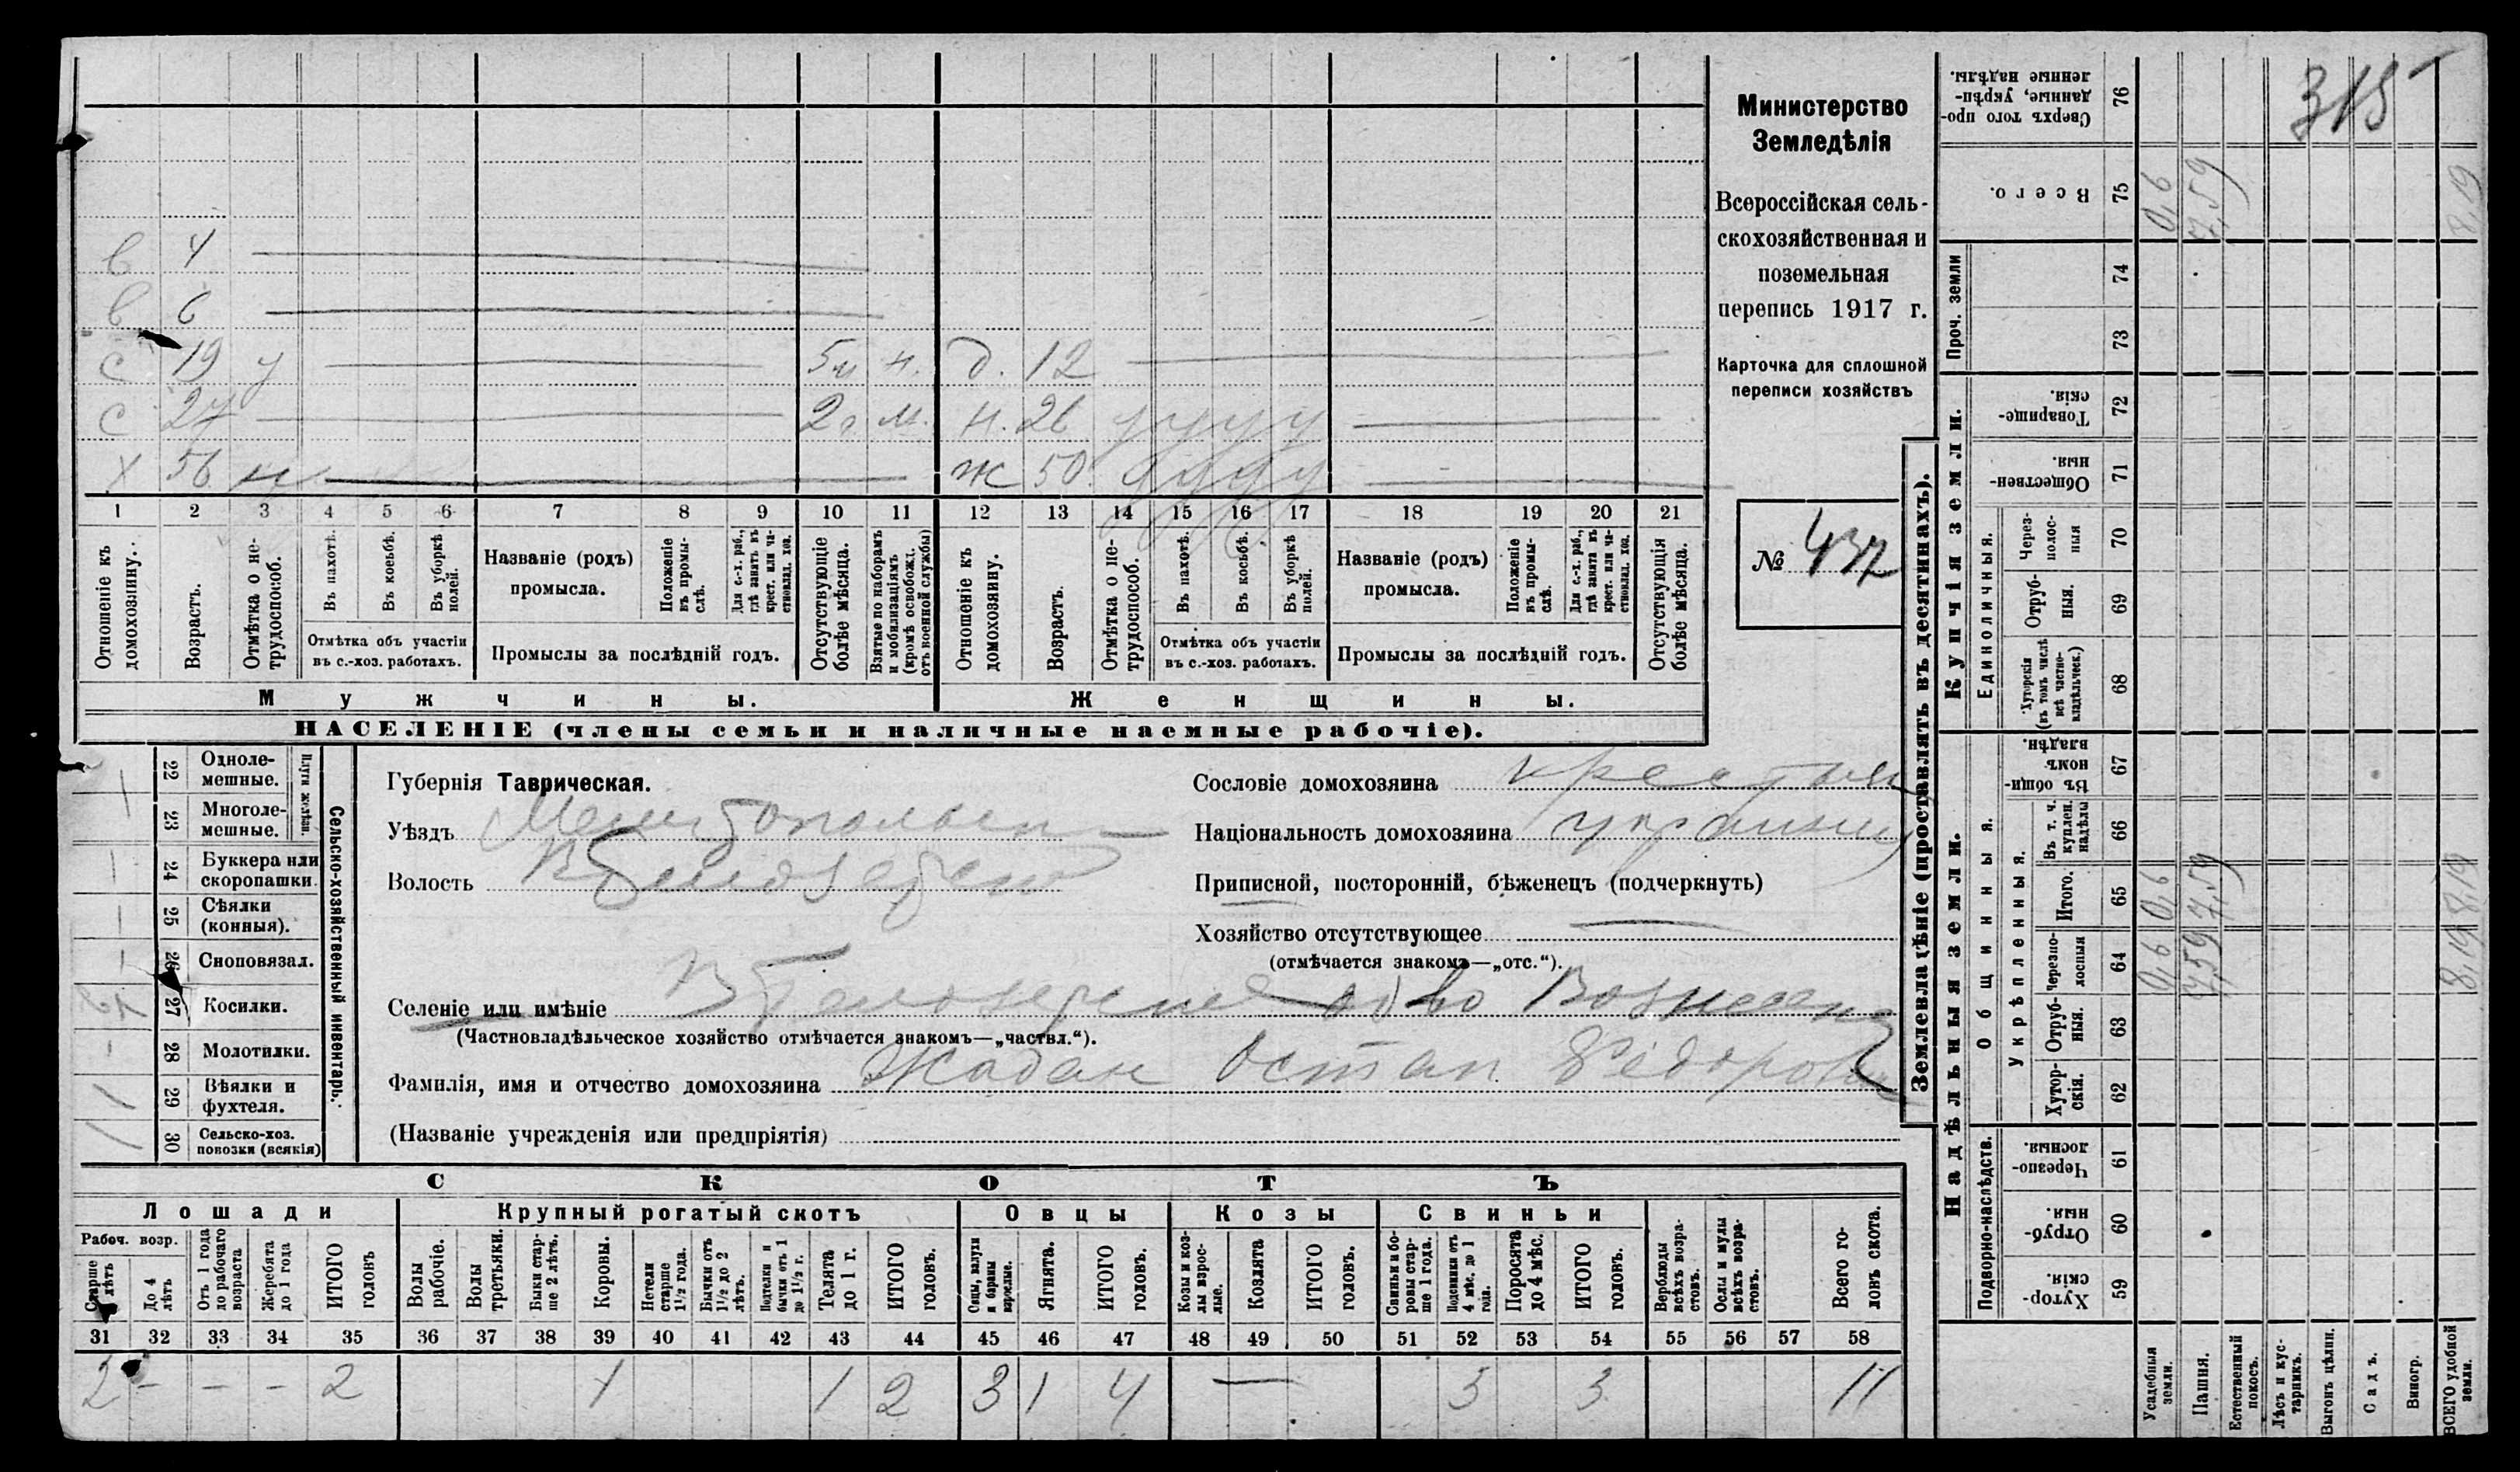 Министерство
Земледѣлія
Всероссійская сель-
скохозяйственная и
поземельная
перепись 1917 г.
Карточка для сплошной
переписи хозяйствъ
№ 437
315
в 4
в 6
с 19 у 5 м н. д. 12
с 27 2 г. м. н. 26 у у у у
х 56 н ж 50 у у у у
1 2 3 4 5 6 7 8 9 10 11 12 13 14 15 16 17 18 19 20 21
Отношеніе къ домохозяину.
Возрастъ.
Отмѣтка о не-трудоспособ.
Въ пахотѣ.
Въ косьбѣ.
Въ уборкѣ полей.
Отмѣтка объ участіи
въ с.-хоз. работахъ.
Названіе (родъ)
промысла.
Положеніе въ промы-слѣ.
Для с.-х. раб., гдѣ занятъ въ крест. или ча-стновлад. хоз.
Промыслы за послѣдній годъ.
Отсутствующіе болѣе мѣсяца.
Взятые по наборамъ и мобилизаціямъ (кромѣ освобожд. отъ военной службы)
Отношеніе къ домохозяину.
Возрастъ.
Отмѣтка о не-трудоспособ.
Въ пахотѣ.
Въ косьбѣ.
Въ уборкѣ полей.
Отмѣтка объ участіи
въ с.-хоз. работахъ.
Названіе (родъ)
промысла.
Положеніе въ промы-слѣ.
Для с.-х. раб., гдѣ занята въ крест. или ча-стновлад. хоз.
Промыслы за послѣдній годъ.
Отсутствующія болѣе мѣсяца.
Мужчины. Женщины.
НАСЕЛЕНІЕ (члены семьи и наличные наемные рабочіе).
Сельско-хозяйственный инвентарь.
Плуги желѣзн.
22 Однолемешные.
23 Многолемешные.
24 Буккера или скоропашки.
25 Сѣялки (конныя).
26 Сноповязал.
27 Косилки.
28 Молотилки.
29 Вѣялки и фухтеля.
30 Сельско-хоз. повозки (всякія)
Губернія Таврическая.
Уѣздъ
Волость
Селеніе или имѣніе
(Частновладѣльческое хозяйство отмѣчается знакомъ—„частвл.“).
Фамилія, имя и отчество домохозяина Жадан Остап
(Названіе учрежденія или предпріятія)
Сословіе домохозяина
Національность домохозяина
Приписной, посторонній, бѣженецъ (подчеркнуть)
Хозяйство отсутствующее
(отмѣчается знакомъ—„отс.“).
СКОТЪ
Лошади Крупный рогатый скотъ Овцы Козы Свиньи
Рабоч. возр.
Старше лѣтъ
До 4 лѣтъ
Отъ 1 года до рабочаго возраста
Жеребята до 1 года
ИТОГО головъ
Волы рабочіе.
Волы третьяки.
Быки стар-ше 2 лѣтъ.
Коровы.
Нетели старше 1½ года.
Бычки отъ 1½ до 2 лѣтъ.
Подтелки и бычки отъ 1 до 1½ г.
Телята до 1 г.
ИТОГО головъ.
Овцы, валухи и бараны взрослые.
Ягнята.
ИТОГО головъ.
Козы и коз-лы взрос-лые.
Козлята
ИТОГО головъ.
Свиньи и бо-ровы стар-ше 1 года.
Подсвинки отъ 4 мѣс. до 1 года.
Поросята до 4 мѣс.
ИТОГО головъ.
Верблюды всѣхъ возра-стовъ.
Ослы и мулы всѣхъ возра-стовъ.
Всего го-ловъ скота.
31 32 33 34 35 36 37 38 39 40 41 42 43 44 45 46 47 48 49 50 51 52 53 54 55 56 57 58
2 — — — 2 1 1 2 3 1 4 — 3 3 11
Землевладѣніе (проставлять въ десятинахъ).
Надѣльныя земли. Купчія земли. Проч. земли
Подворно-наслѣдств.
Общинныя.
Укрѣпленныя.
Единоличныя.
59 Хутор-скія.
60 Отруб-ныя.
61 Черезпо-лосныя.
62 Хутор-скія.
63 Отруб-ныя.
64 Черезпо-лосныя 0,6 7,59 8,19
65 Итого. 0,6 7,59 8,19
66 Въ т. ч. куплен. надѣлы
67 Въ общи-номъ владѣн.
68 Хуторскія (въ томъ числѣ всѣ частно-владѣльческ.)
69 Отруб-ныя.
70 Через-полос-ныя
71 Обществен-ныя.
72 Товарище-скія.
73
74
75 Всего. 0,6 7,59 8,19
76 Сверхъ того про-данные, укрѣп-ленные надѣлы.
Усадебныя земли.
Пашня.
Естественный покосъ.
Лѣсъ и кус-тарникъ.
Выгонъ цѣлин.
Садъ.
Виногр.
ВСЕГО удобной земли.